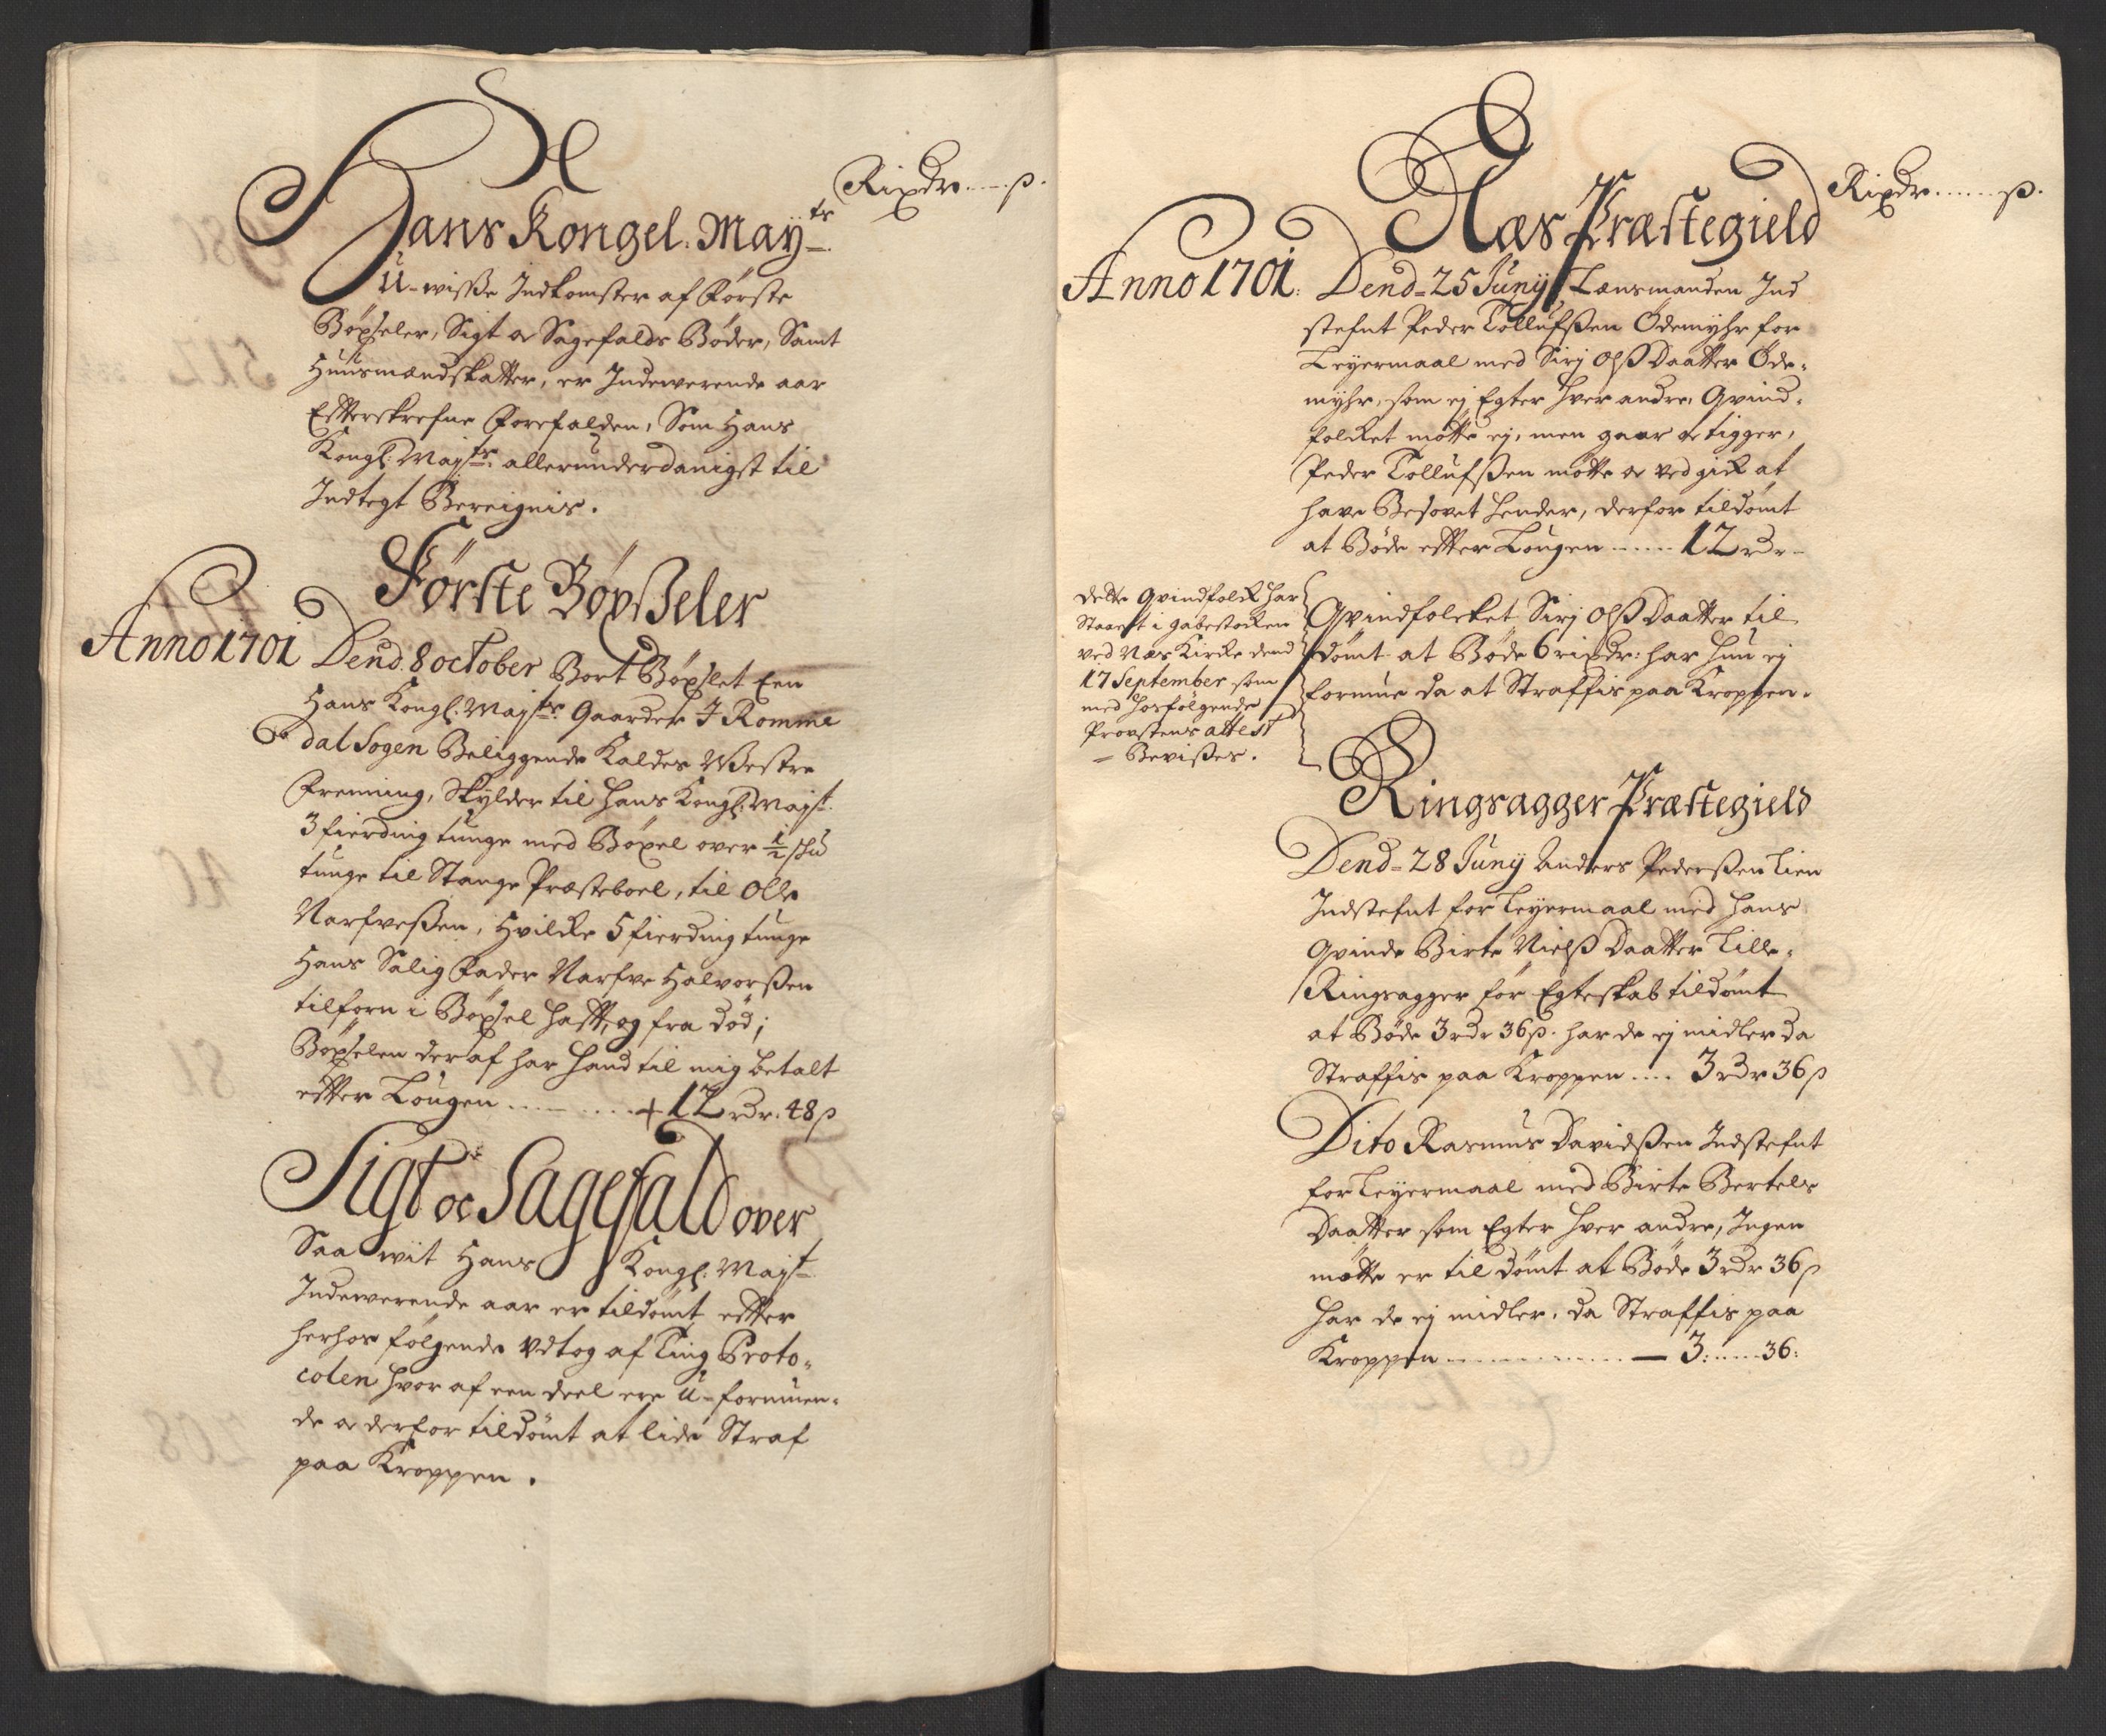 Rixdr. .... ß.
Hans Kongel. Mayts
U-wisse Indkomster af Første
Bøxseler, Sigt oc Sagefalds Bøder, Samt
Huusmændskatter, er Indewerende aar
Effterskrefne Forefalden, Som Hans
Kongl: Majts: allerunderdanigst til
Indtegt Bereignis.
Første Bøxßeler
Anno 1701 Dend. 8 october Bort Bøxslet Een
Hans Kongl. Majts: Gaarder J Romme
dal Sogen Beliggende Kaldes Westre
Frenning, Skylder til Hans Kongl. Majt.
3 fierding tunge med Bøxel over 1/2 shd
tunge til Stange Præsteboel, til Olle
Narfveßen, Hvilcke 5 fierding tunge
Hans Salig Fader Narfve Halvorßen
tilforn i Bøxsel hafft, og fra død;
Bøxselen deraf har hand til mig betalt
effter Lougen ........ + 12 rdr. 48 ß
Sigt oc Sagefald over
Saa wit Hans Kongl: Majt
Indewerende aar er tildømt effter
herhos følgende Vdtog af Ting Proto-
colen hvor af een deel ere U-formuen-
de oc derfor tildømt at lide Straf
paa Kroppen.
Rixdr. ...... ß.
Næs Præstegield
Anno 1701. Dend= 25 Junij Lænsmanden Ind
stefnt Peder Tollufßen Ødemyhr for
Leyermaal med Sirj Olß Daatter Øde-
myhr, som ej Egter hver andre, Qvind-
folcket møtte ej, men gaar oc tigger,
Peder Tollufßen møtte oc ved gick at
have Besovet hender, derfor tildømt
at Bøde effter Lougen ...... 12 rdr-
dette Qvindfolck har
Staaet i gabestocken
ved Næs Kircke dend
17 September som
med hosfølgende
Provstens attest
- Bevißes.
Qvindfolcket Sirj Olß Daatter til
dømt at Bøde 6 rixdr: har hun ej
formue da at Straffis paa Kroppen.
Ringsagger Præstegield
Dend= 28 Junij Anders Pederßen Lien
Indstefnt for Leyermaal med hans
Qvinde Birte Nielß Daatter Lille-
Ringsagger før Egteskab tildømt
at Bøde 3 rdr 36 ß. har de ej midler da
Straffis paa Kroppen .... 3 rdr 36 ß
Dito Rasmus Davidßen Indstefnt
for Leyermaal med Birte Bertels
Daatter som Egter hver andre, Ingen
møtte er til dømt at Bøde 3 rdr 36 ß
har de ej midler, da Straffis paa
Kroppen ............ — 3: ..... 36: